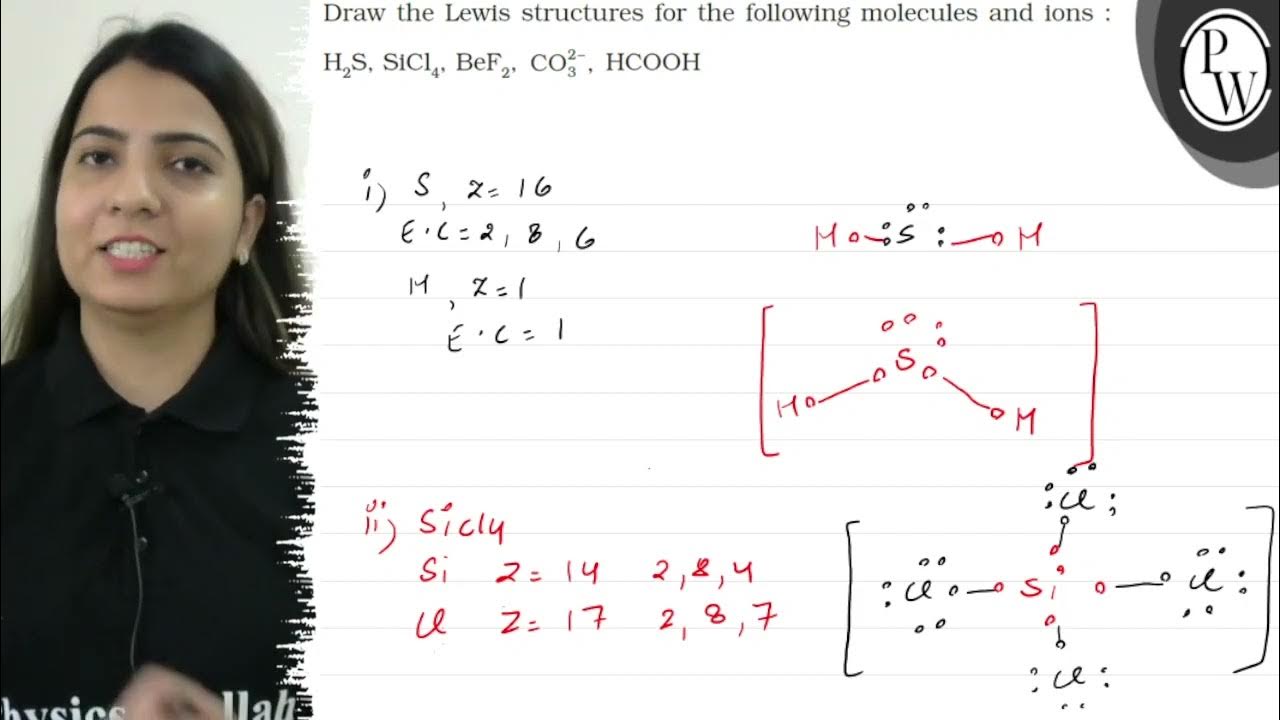 Draw the Lewis structures for the following molecules and ions :
H₂S, SiCl₄, BeF₂, CO₃²⁻, HCOOH
PW
i) S, Z = 16
E.C = 2, 8, 6
H, Z = 1
E.C = 1
H S H
S
H H
ii) SiCl4
Si Z = 14 2, 8, 4
Cl Z = 17 2, 8, 7
Cl
Cl Si Cl
Cl